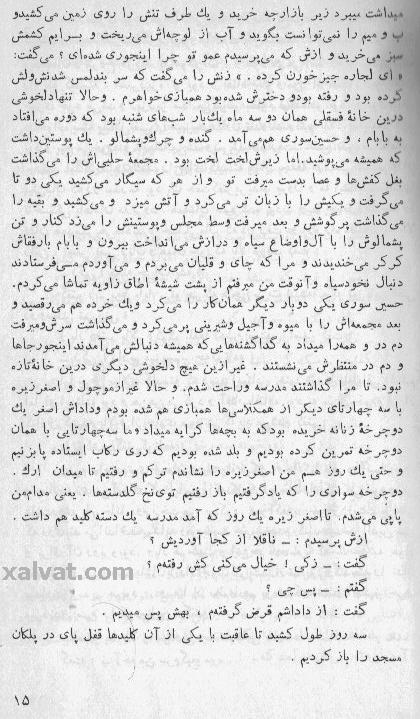 میداشت میبرد زیر بازارچه خرید و یك طرف تنش را روی زمین می‌کشید و
پ و میم را نمی‌توانست بگوید و آب از لوچه‌اش می‌ریخت و برایم کشمش
سبز می‌خرید و ازش که می‌پرسیدم عمو تو چرا اینجوری شده‌ای ؟ می‌گفت:
« ای لجاره چیز خورن کرده . » زنش را می‌گفت که سر بندلمس شدنش ولش
کرده بود و رفته بود و دخترش شده بود همبازی خواهرم . و حالا تنها دلخوشی
درین خانهٔ فسقلی همان دو سه ماه یك‌بار شب‌های شنبه بود که دوره می‌افتاد
به بابام ، و حسین سوری هم می‌آمد . گنده و چرك و پشمالو . یك پوستین داشت
که همیشه می‌پوشید. اما زیرش لخت لخت بود . مجمعهٔ حلبی‌اش را می‌گذاشت
بغل کفش‌ها و عصا بدست میرفت تو و از هر که سیگار می‌کشید یکی دو تا
می‌گرفت و یکیش را با زبان تر می‌کرد و آتش میزد و می‌کشید و بقیه را
می‌گذاشت پر گوشش و بعد میرفت وسط مجلس و پوستینش را می‌زد کنار و تن
پشمالوش را با آل و اوضاع سیاه و درازش می‌انداخت بیرون و بابام با رفقاش
کرکر می‌خندیدند و مرا که چای و قلیان می‌بردم و می‌آوردم مـی‌فرستادند
دنبال نخود سیاه و آنوقت من میرفتم از پشت شیشهٔ اطاق زاویه تماشا می‌کردم.
حسین سوری یکی دو بار دیگر همان کار را می‌کرد و یك خرده هم می‌رقصید و
بعد مجمعه‌اش را با میوه و آجیل و شیرینی پر می‌کرد و می‌گذاشت سرش و میرفت
دم در و همه را میداد به گدا گشنه‌هایی که همیشه دنبالش می‌آمدند اینجور جاها
و دم در منتظرش می‌نشستند . غیر ازین هیچ دلخوشی دیگری درین خانهٔ تازه
نبود. تا مرا گذاشتند مدرسه و راحت شدم. و حالا غیر از موچول و اصغر ریزه
با سه چهار تای دیگر از همکلاسی‌ها همبازی هم شده بودم و داداش اصغر یك
دوچرخهٔ زنانه خریده بود که به بچه‌ها کرایه میداد و ما سه چهارتایی با همان
دوچرخه تمرین کرده بودیم و بلد شده بودیم که روی رکاب ایستاده پا بزنیم
و حتی یك روز هـم من اصغر ریزه را نشاندم ترکم و رفتیم تا میدان ارك .
دوچرخه سواری را که یاد گرفتیم باز رفتیم توی نخ گلدسته‌ها . یعنی مدام من
پاپی می‌شدم. تا اصغر ریزه یك روز که آمد مدرسه یك دسته کلید هم داشت .
ازش پرسیدم : ــ ناقلا از کجا آوردیش ؟
گفت: ــ زکی ! خیال می‌کنی کش رفته‌م ؟
گفتم : ــ پس چی ؟
گفت : از داداشم قرض گرفته‌م ، بهش پس میدیم .
سه روز طول کشید تا عاقبت با یکی از آن کلیدها قفل پای در پلکان
مسجد را باز کردیم .
xalvat.com
۱۵